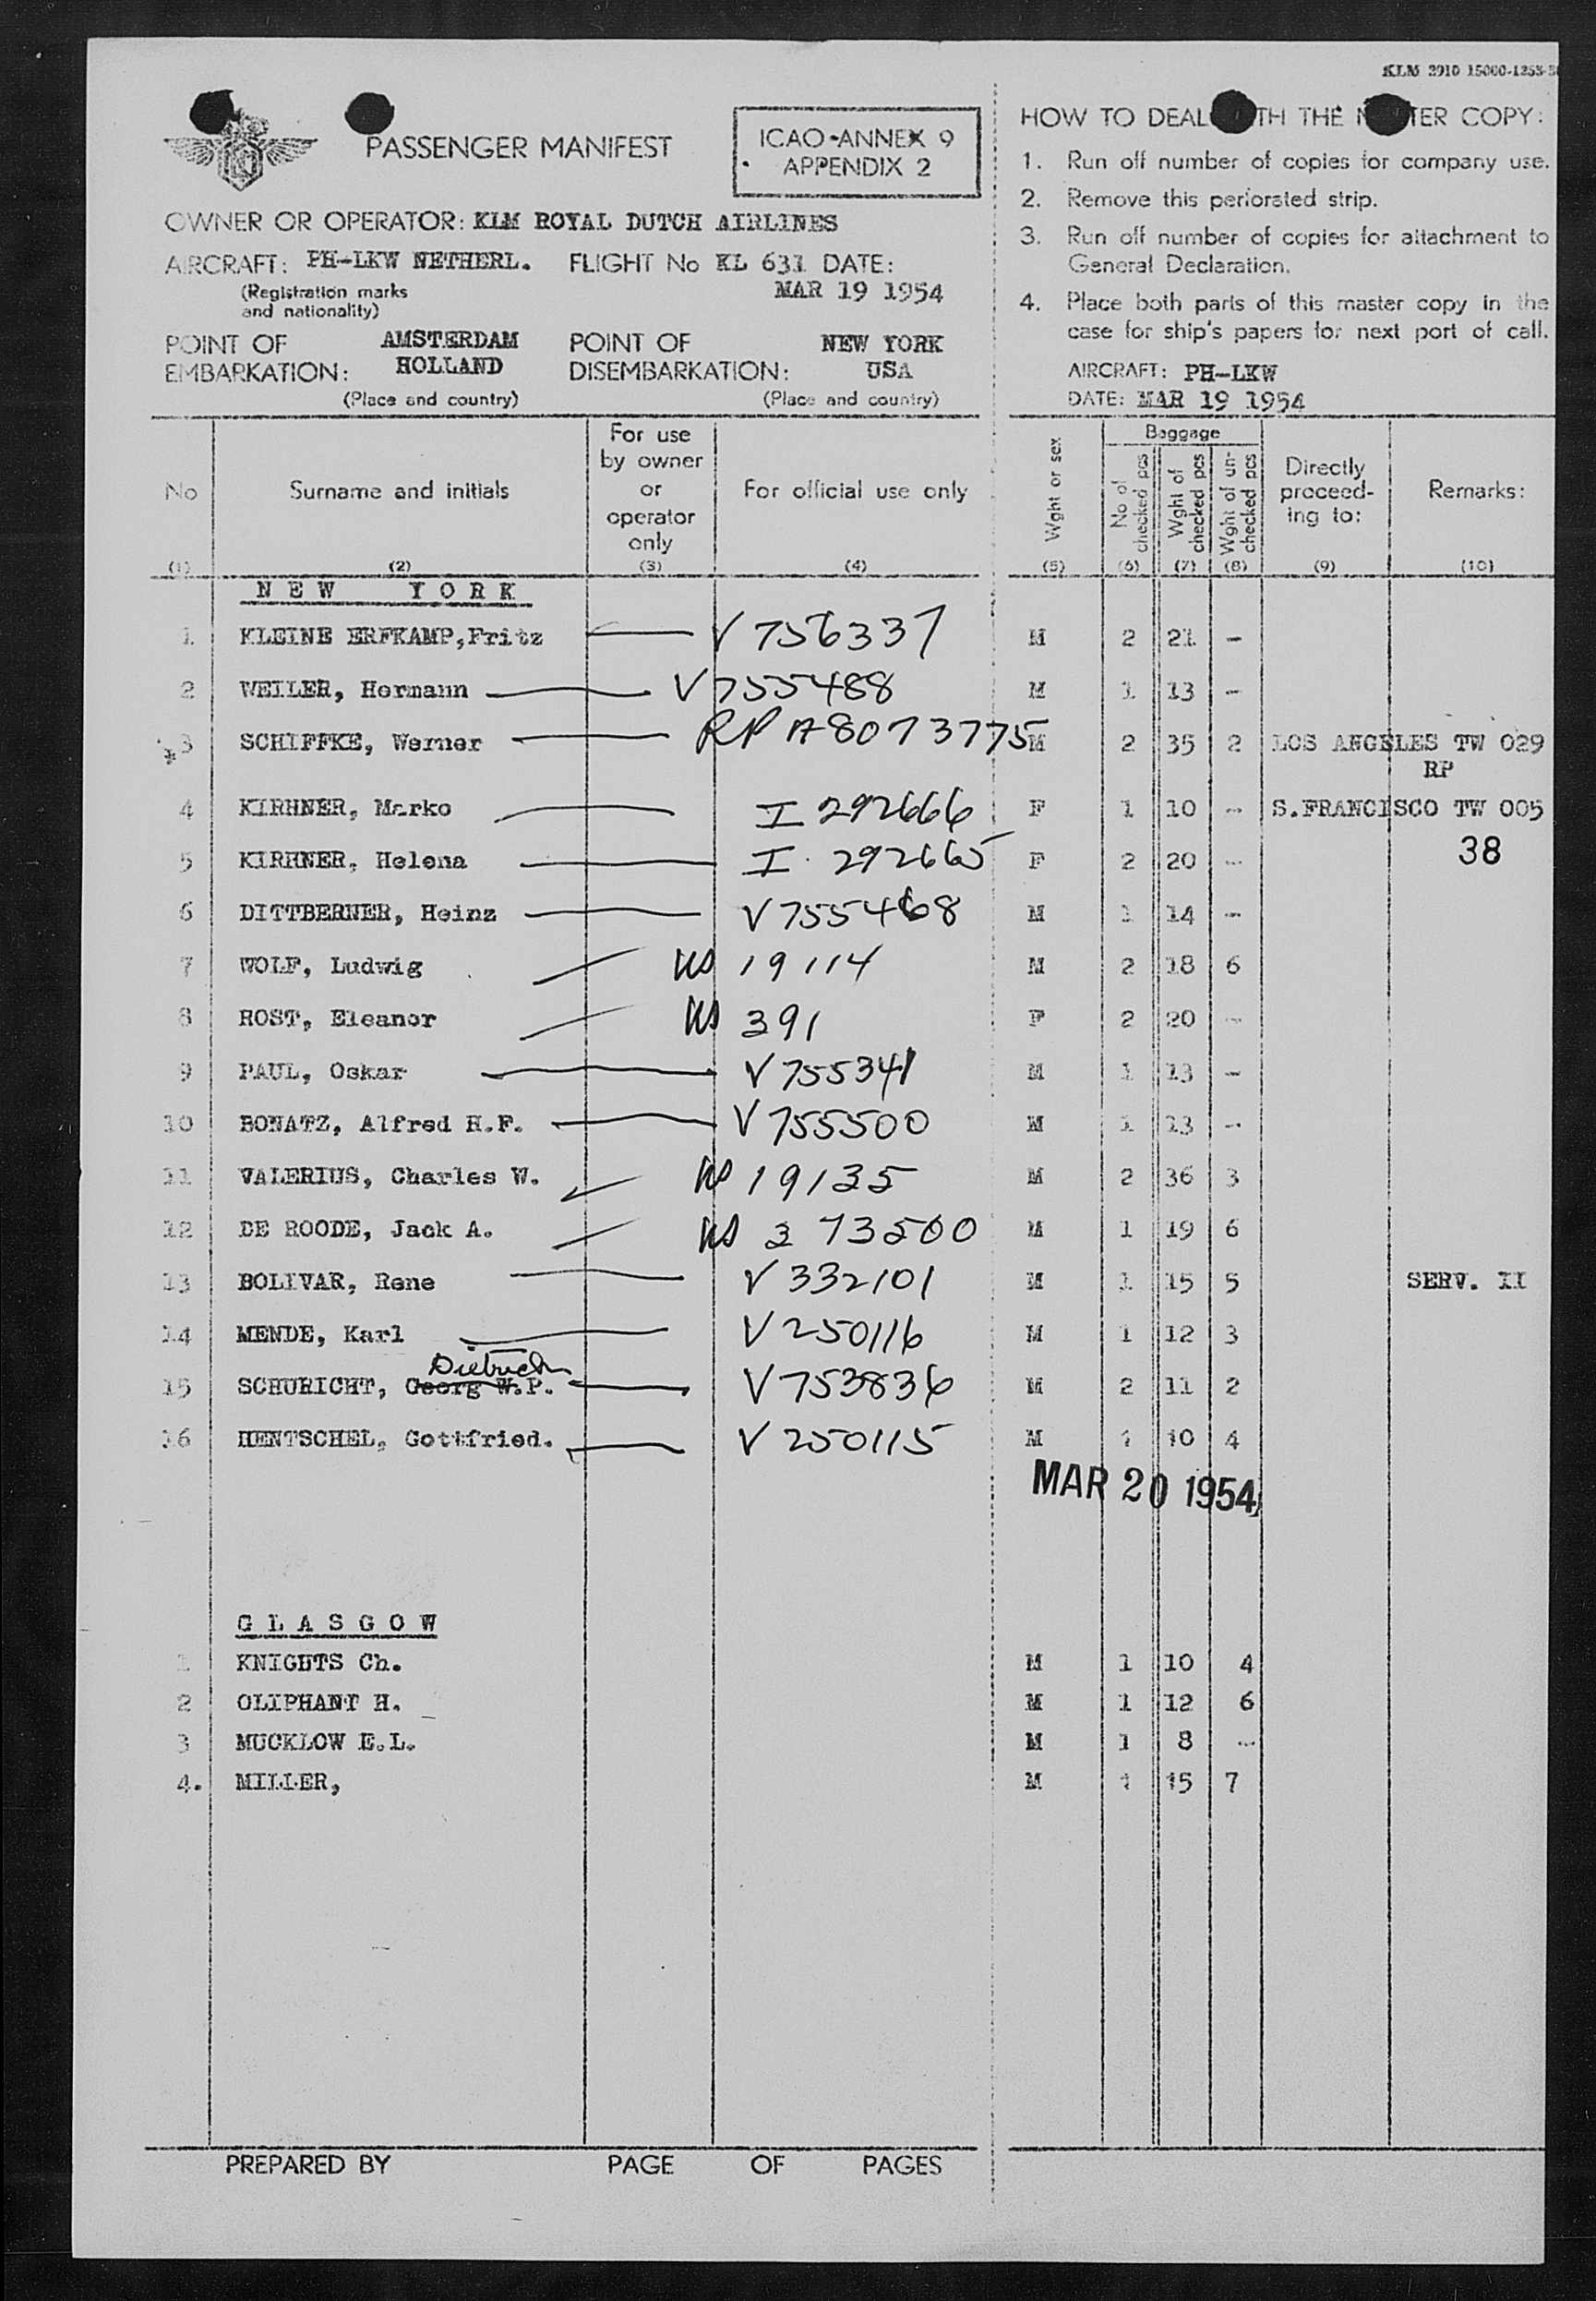 KLM 2910 15000-1253-
PASSENGER MANIFEST
ICAO-ANNEX 9
APPENDIX 2
OWNER OR OPERATOR: KLM ROYAL DUTCH AIRLINES
AIRCRAFT: PH-LKW NETHERL. FLIGHT No KL 631 DATE:
(Registration marks
and nationality)
MAR 19 1954
POINT OF EMBARKATION: AMSTERDAM HOLLAND
(Place and country)
POINT OF DISEMBARKATION: NEW YORK USA
(Place and country)
HOW TO DEAL TH THE TER COPY:
1. Run off number of copies for company use.
2. Remove this perforated strip.
3. Run off number of copies for attachment to
General Declaration.
4. Place both parts of this master copy in the
case for ship's papers for next port of call.
AIRCRAFT: PH-LKW
DATE: MAR 19 1954
No
Surname and initials
For use
by owner
or
operator
only
For official use only
Wght or sex
Baggage
No of checked pcs
Wght of checked pcs
Wght of un-checked pcs
Directly
proceed-
ing to:
Remarks:
(1) (2) (3) (4) (5) (6) (7) (8) (9) (10)
NEW YORK
1 KLEINE ERFKAMP,Fritz V 756337 M 2 21 -
2 WEILER, Hermann V 755488 M 1 13 -
3 SCHIFFKE, Werner RP A8073775 M 2 35 2 LOS ANGELES TW 029
RP
4 KIRHNER, Marko I 292666 F 1 10 - S.FRANCISCO TW 005
38
5 KIRHNER, Helena I. 292665 F 2 20 -
6 DITTBERNER, Heinz V 755468 M 1 14 -
7 WOLF, Ludwig US 19114 M 2 18 6
8 ROST, Eleanor US 391 F 2 20 -
9 PAUL, Oskar V 755341 M 1 13 -
10 BONATZ, Alfred H.F. V 755500 M 1 13 -
11 VALERIUS, Charles W. US 19135 M 2 36 3
12 DE ROODE, Jack A. US 273500 M 1 19 6
13 BOLIVAR, Rene V 332101 M 1 15 5 SERV. II
14 MENDE, Karl V 250116 M 1 12 3
Dietrich
15 SCHURICHT, Georg W.P. V 753836 M 2 11 2
16 HENTSCHEL, Gottfried. V 250115 M 1 10 4
MAR 20 1954
GLASGOW
1 KNIGHTS Ch. M 1 10 4
2 OLIPHANT H. M 1 12 6
3 MUCKLOW E.L. M 1 8 -
4. MILLER, M 1 15 7
PREPARED BY PAGE OF PAGES